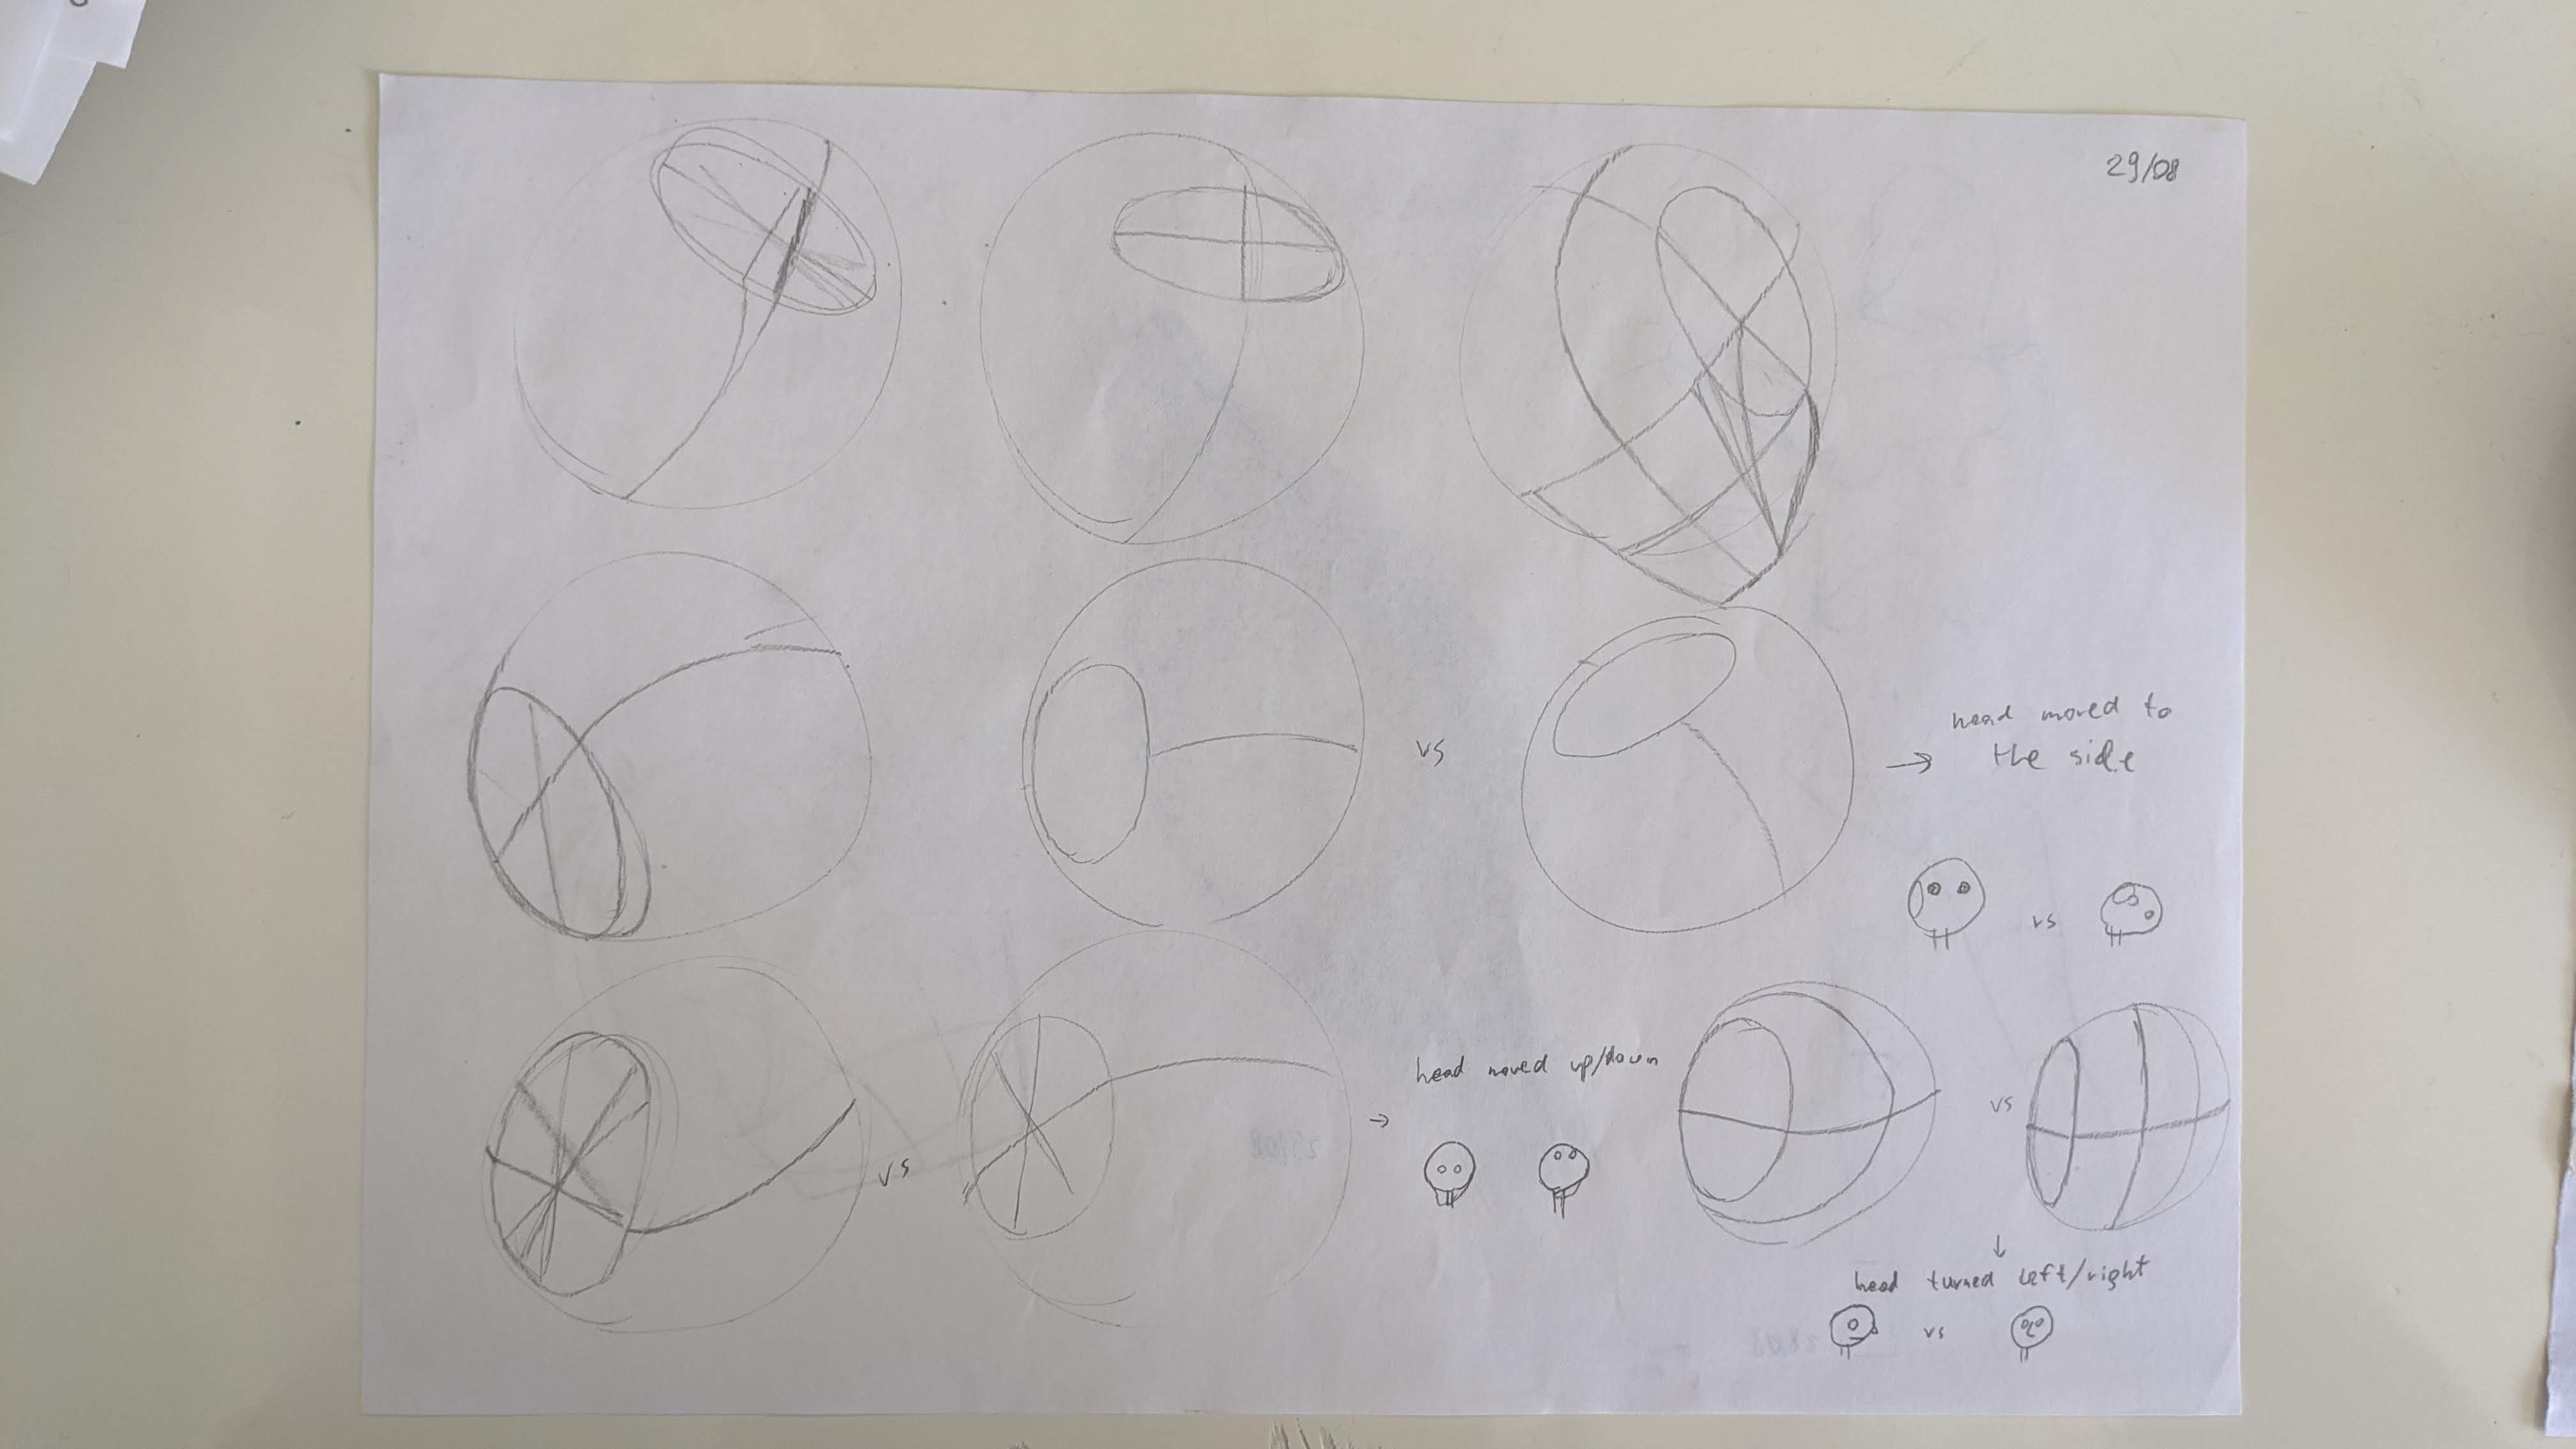 29/08
vs
head moved to
→ the side
vs
vs
→ head moved up/down
vs
↓
head turned left/right
vs